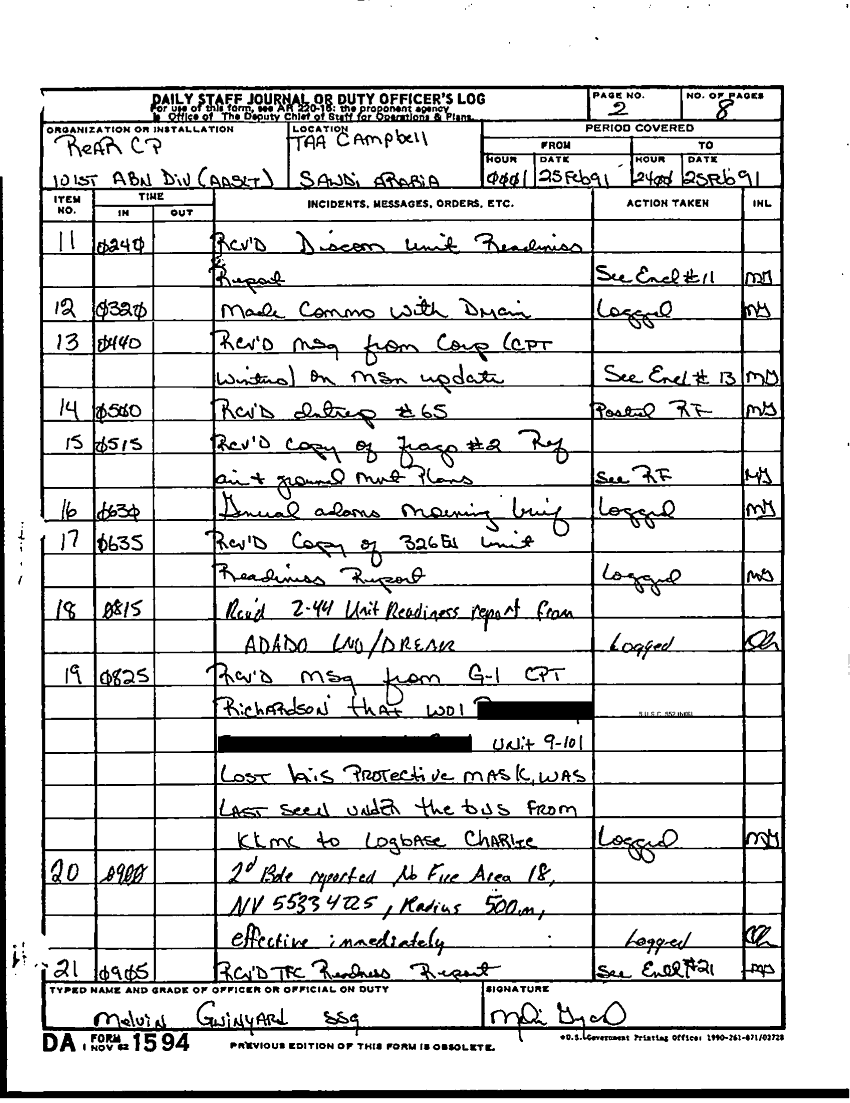 DAILY STAFF JOURNAL OR DUTY OFFICER'S LOG
For use of this form, see AR 220-15: the proponent agency
is Office of The Deputy Chief of Staff for Operations & Plans.
PAGE NO. 2
NO. OF PAGES 8
ORGANIZATION OR INSTALLATION
ReAR CP
101ST ABN Div (AASLT)
LOCATION
TAA Campbell
SAUDi ARABIA
PERIOD COVERED
FROM TO
HOUR DATE HOUR DATE
0001 25Feb91 2400 25Feb91
ITEM NO. TIME INCIDENTS, MESSAGES, ORDERS, ETC. ACTION TAKEN INL
IN OUT
11 0240 Rcv'D Discom Unit Readiness
Report See Encl #11 MG
12 0320 Made Commo with Dmain Logged MG
13 0440 Rcv'D msg from Corp (CPT
Winters) on msn update See Encl # 13 MG
14 0500 Rcv'D Intrep #65 Posted RF MG
15 0515 Rcv'D Copy of frago #2 Ref
air + ground mvt Plans See RF MG
16 0630 General adams morning brief Logged MG
17 0635 Rcv'D Copy of 326EN Unit
Readiness Report Logged MG
18 0815 Rcv'd 2-44 Unit Readiness report from
ADADO LNO/DREAR Logged
19 0825 Rcv'D msg from G-1 CPT
RicHARDSON that WO1
5 U.S.C. 552 (b)(6)
UNit 9-101
LOST his PROTective mASK, WAS
LAST seen UNDER the bus FROM
KKMC to LogBASE CHARlie Logged MG
20 0900 2d Bde reported No Fire Area 18,
NV 55334725, Radius 500m,
effective immediately Logged
21 0905 RCV'D TFC Readness Report See Encl #21 MG
TYPED NAME AND GRADE OF OFFICER OR OFFICIAL ON DUTY
Melvin GwinYARD SSG
SIGNATURE
DA FORM 1 NOV 62 1594
PREVIOUS EDITION OF THIS FORM IS OBSOLETE.
☆U.S. Government Printing Office: 1990-261-871/02728